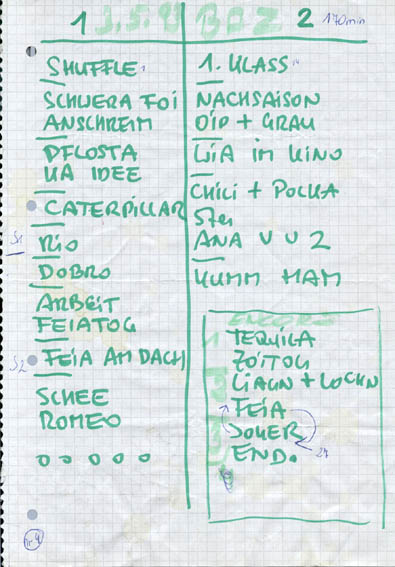 1
SHUFFLE
SCHWERA FOI
ANSCHREIM
PFLOSTA
KA IDEE
CATERPILLAR
S1
RiO
DOBRO
ARBEIT
FEIATOG
S2
FEIA AM DACH
SCHEE
ROMEO
o o o o o
2
170min
1. KLASS
NACHSAISON
OID + GRAU
LIA im KINO
CHiLi + POLKA
ANA V U 2
KUMM HAM
ENCORE
TEQUILA
ZOITOG
LIACHN + LOCKN
FEiA
JOKER
END.